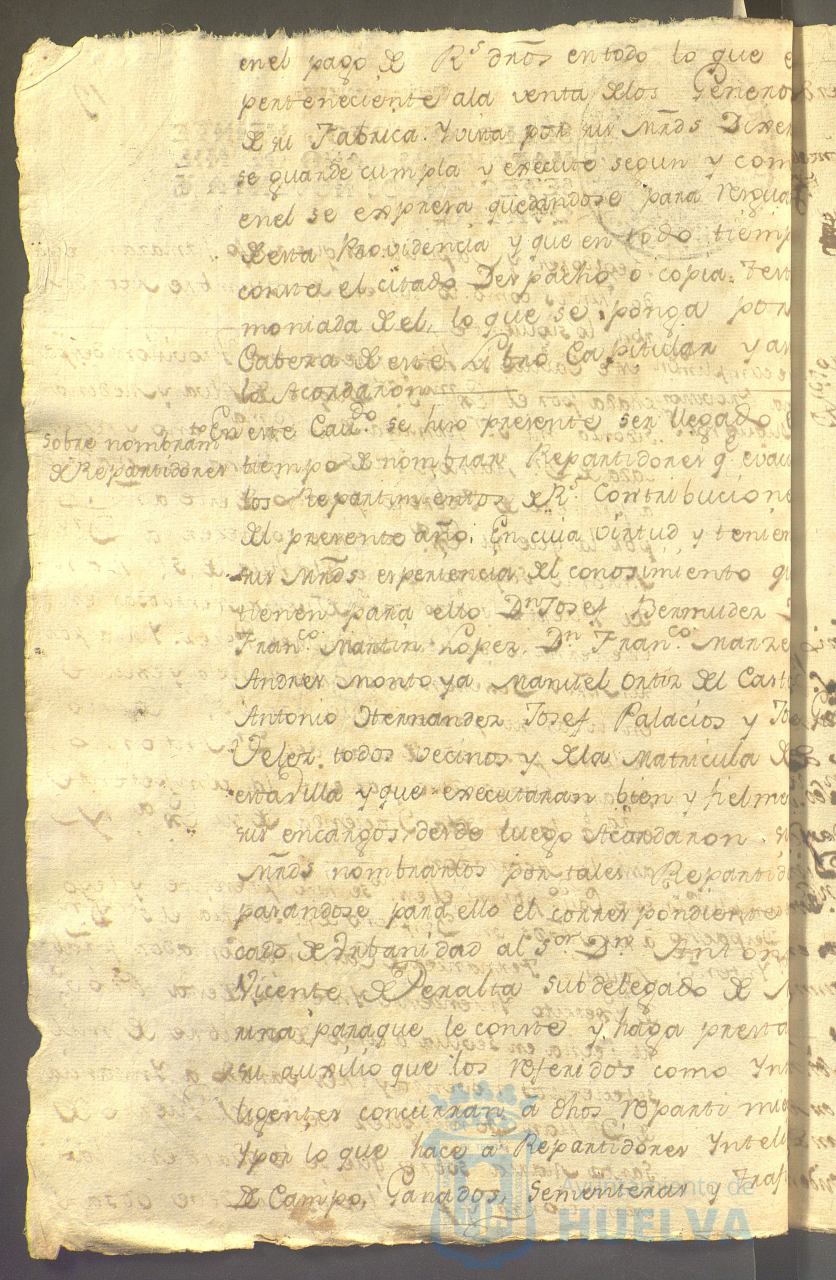 en el pago de R.s dr̃os en todo lo que e
perteneciente ala venta delos Generos
de su Fabrica. Y vista por sus Mr̃ds Dixer
se guarde cumpla y execute segun y com
enel se expresa quedandose para resgua
desta Providencia y que en todo tiemp
conste el citado Despacho o copia Tes
moniada del, lo que se ponga por
Cabeza de este Libro Capitular y a
lo Acordaron
Sobre nombram.to
de Repartidores
En este Cav.do se hizo presente ser llegado e
tiempo de nombrar Repartidores q.e evacu
los Repartimientos de R.s Contribucione
del presente año; En cuia virtud y tenien
sus Mr̃ds esperiencia del conosimiento q
tienen para ello D.n Josef Bermudez
Fran.co Martin Lopez, D.n Fran.co Manze
Andres Montoya Manuel Ortiz del Cast
Antonio Hernandez Josef Palacios y Jo
Velez, todos vecinos y dela Matricula de
esta Villa y que executaran bien y fielme
sus encargos, desde luego Acordaron s
Mr̃ds nombrarlos por tales Repartid
pasandose para ello el correspondiente
cado de Urbanidad al S.or D.n Anton
Vicente de Peralta subdelegado de M
rina paraque le conste y haga presta
su auxilio que los referidos como Int
ligentes concurran a dhos reparti mie
Y por lo que hace a Repartidores Intel
de Campo, Ganados, Sementeras y Traf
Ayuntamiento de
HUELVA